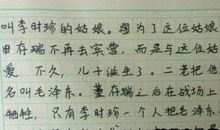 叫李时珍的姑娘。因为了这位姑娘
董存瑞不再去当营。而是与这位姑
爱。不久,儿子诞生了。二老把他
名叫毛泽东。董存瑞之后在战场上
牺牲,只有李时珍一个人把毛泽东